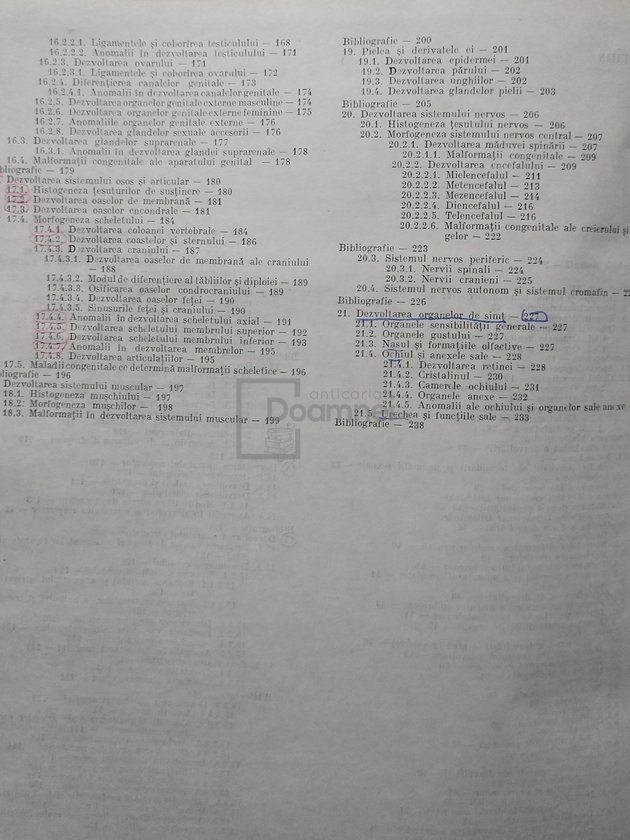 16.2.2.1. Ligamentele și coborîrea testiculului — 168
16.2.2.2. Anomalii în dezvoltarea testiculului — 171
16.2.3. Dezvoltarea ovarului — 171
16.2.3.1. Ligamentele și coborîrea ovarului — 172
16.2.4. Diferențierea canalelor genitale — 173
16.2.4.1. Anomalii în dezvoltarea canalelor genitale — 174
16.2.5. Dezvoltarea organelor genitale externe masculine — 174
16.2.6. Dezvoltarea organelor genitale externe feminine — 175
16.2.7. Anomaliile organelor genitale externe — 176
16.2.8. Dezvoltarea glandelor sexuale accesorii — 176
16.3. Dezvoltarea glandelor suprarenale — 177
16.3.1. Anomalii în dezvoltarea glandei suprarenale — 178
16.4. Malformații congenitale ale aparatului genital — 178
bliografie — 179
Dezvoltarea sistemului osos și articular — 180
17.1. Histogeneza țesuturilor de susținere — 180
17.2. Dezvoltarea oaselor de membrană — 181
17.3. Dezvoltarea oaselor encondrale — 181
17.4. Morfogeneza scheletului — 184
17.4.1. Dezvoltarea coloanei vertebrale — 184
17.4.2. Dezvoltarea coastelor și sternului — 186
17.4.3. Dezvoltarea craniului — 187
17.4.3.1. Dezvoltarea oaselor de membrană ale craniului
— 188
17.4.3.2. Modul de diferențiere al tăbliilor și diploiei — 189
17.4.3.3. Osificarea oaselor condrocraniului — 189
17.4.3.4. Dezvoltarea oaselor feței — 190
17.4.3.5. Sinusurile feței și craniului — 190
17.4.4. Anomalii în dezvoltarea scheletului axial — 191
17.4.5. Dezvoltarea scheletului membrului superior — 192
17.4.6. Dezvoltarea scheletului membrului inferior — 193
17.4.7. Anomalii în dezvoltarea membrelor — 195
17.4.8. Dezvoltarea articulațiilor — 195
17.5. Maladii congenitale ce determină malformații scheletice — 196
bliografie — 196
Dezvoltarea sistemului muscular — 197
18.1. Histogeneza mușchiului — 197
18.2. Morfogeneza mușchilor — 198
18.3. Malformații în dezvoltarea sistemului muscular — 199
Bibliografie — 200
19. Pielea și derivatele ei — 201
19.1. Dezvoltarea epidermei — 201
19.2. Dezvoltarea părului — 202
19.3. Dezvoltarea unghiilor — 202
19.4. Dezvoltarea glandelor pielii — 203
Bibliografie — 205
20. Dezvoltarea sistemului nervos — 206
20.1. Histogeneza țesutului nervos — 206
20.2. Morfogeneza sistemului nervos central — 207
20.2.1. Dezvoltarea măduvei spinării — 207
20.2.1.1. Malformații congenitale — 209
20.2.2. Dezvoltarea encefalului — 209
20.2.2.1. Mielencefalul — 211
20.2.2.2. Metencefalul — 213
20.2.2.3. Mezencefalul — 214
20.2.2.4. Diencefalul — 216
20.2.2.5. Telencefalul — 216
20.2.2.6. Malformații congenitale ale creierului și
gelor — 222
Bibliografie — 223
20.3. Sistemul nervos periferic — 224
20.3.1. Nervii spinali — 224
20.3.2. Nervii cranieni — 225
20.4. Sistemul nervos autonom și sistemul cromafin — 22
Bibliografie — 226
21. Dezvoltarea organelor de simț — 227
21.1. Organele sensibilității generale — 227
21.2. Organele gustului — 227
21.3. Nasul și formațiile olfactive — 227
21.4. Ochiul și anexele sale — 228
21.4.1. Dezvoltarea retinei — 228
21.4.2. Cristalinul — 230
21.4.3. Camerele ochiului — 231
21.4.4. Organele anexe — 232
21.4.5. Anomalii ale ochiului și organelor sale anexe
21.5. Urechea și funcțiile sale — 233
Bibliografie — 238
anticariat